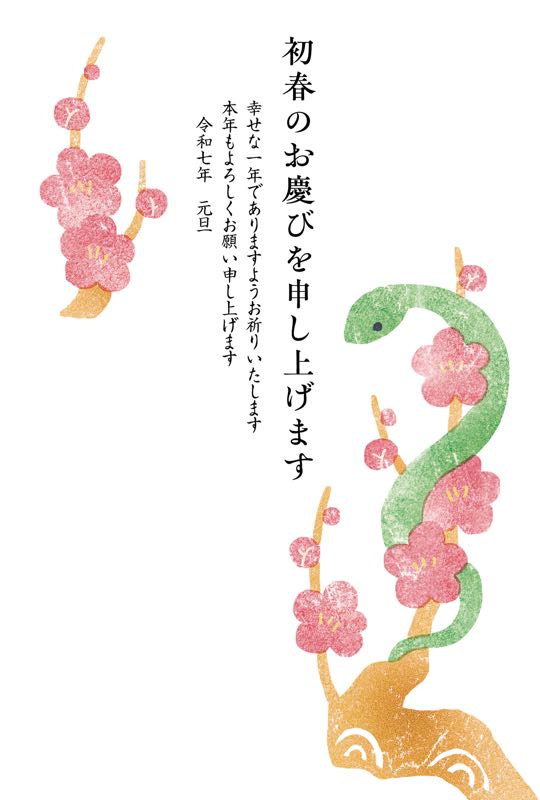 初春のお慶びを申し上げます
幸せな一年でありますようお祈りいたします
本年もよろしくお願い申し上げます
令和七年　元旦